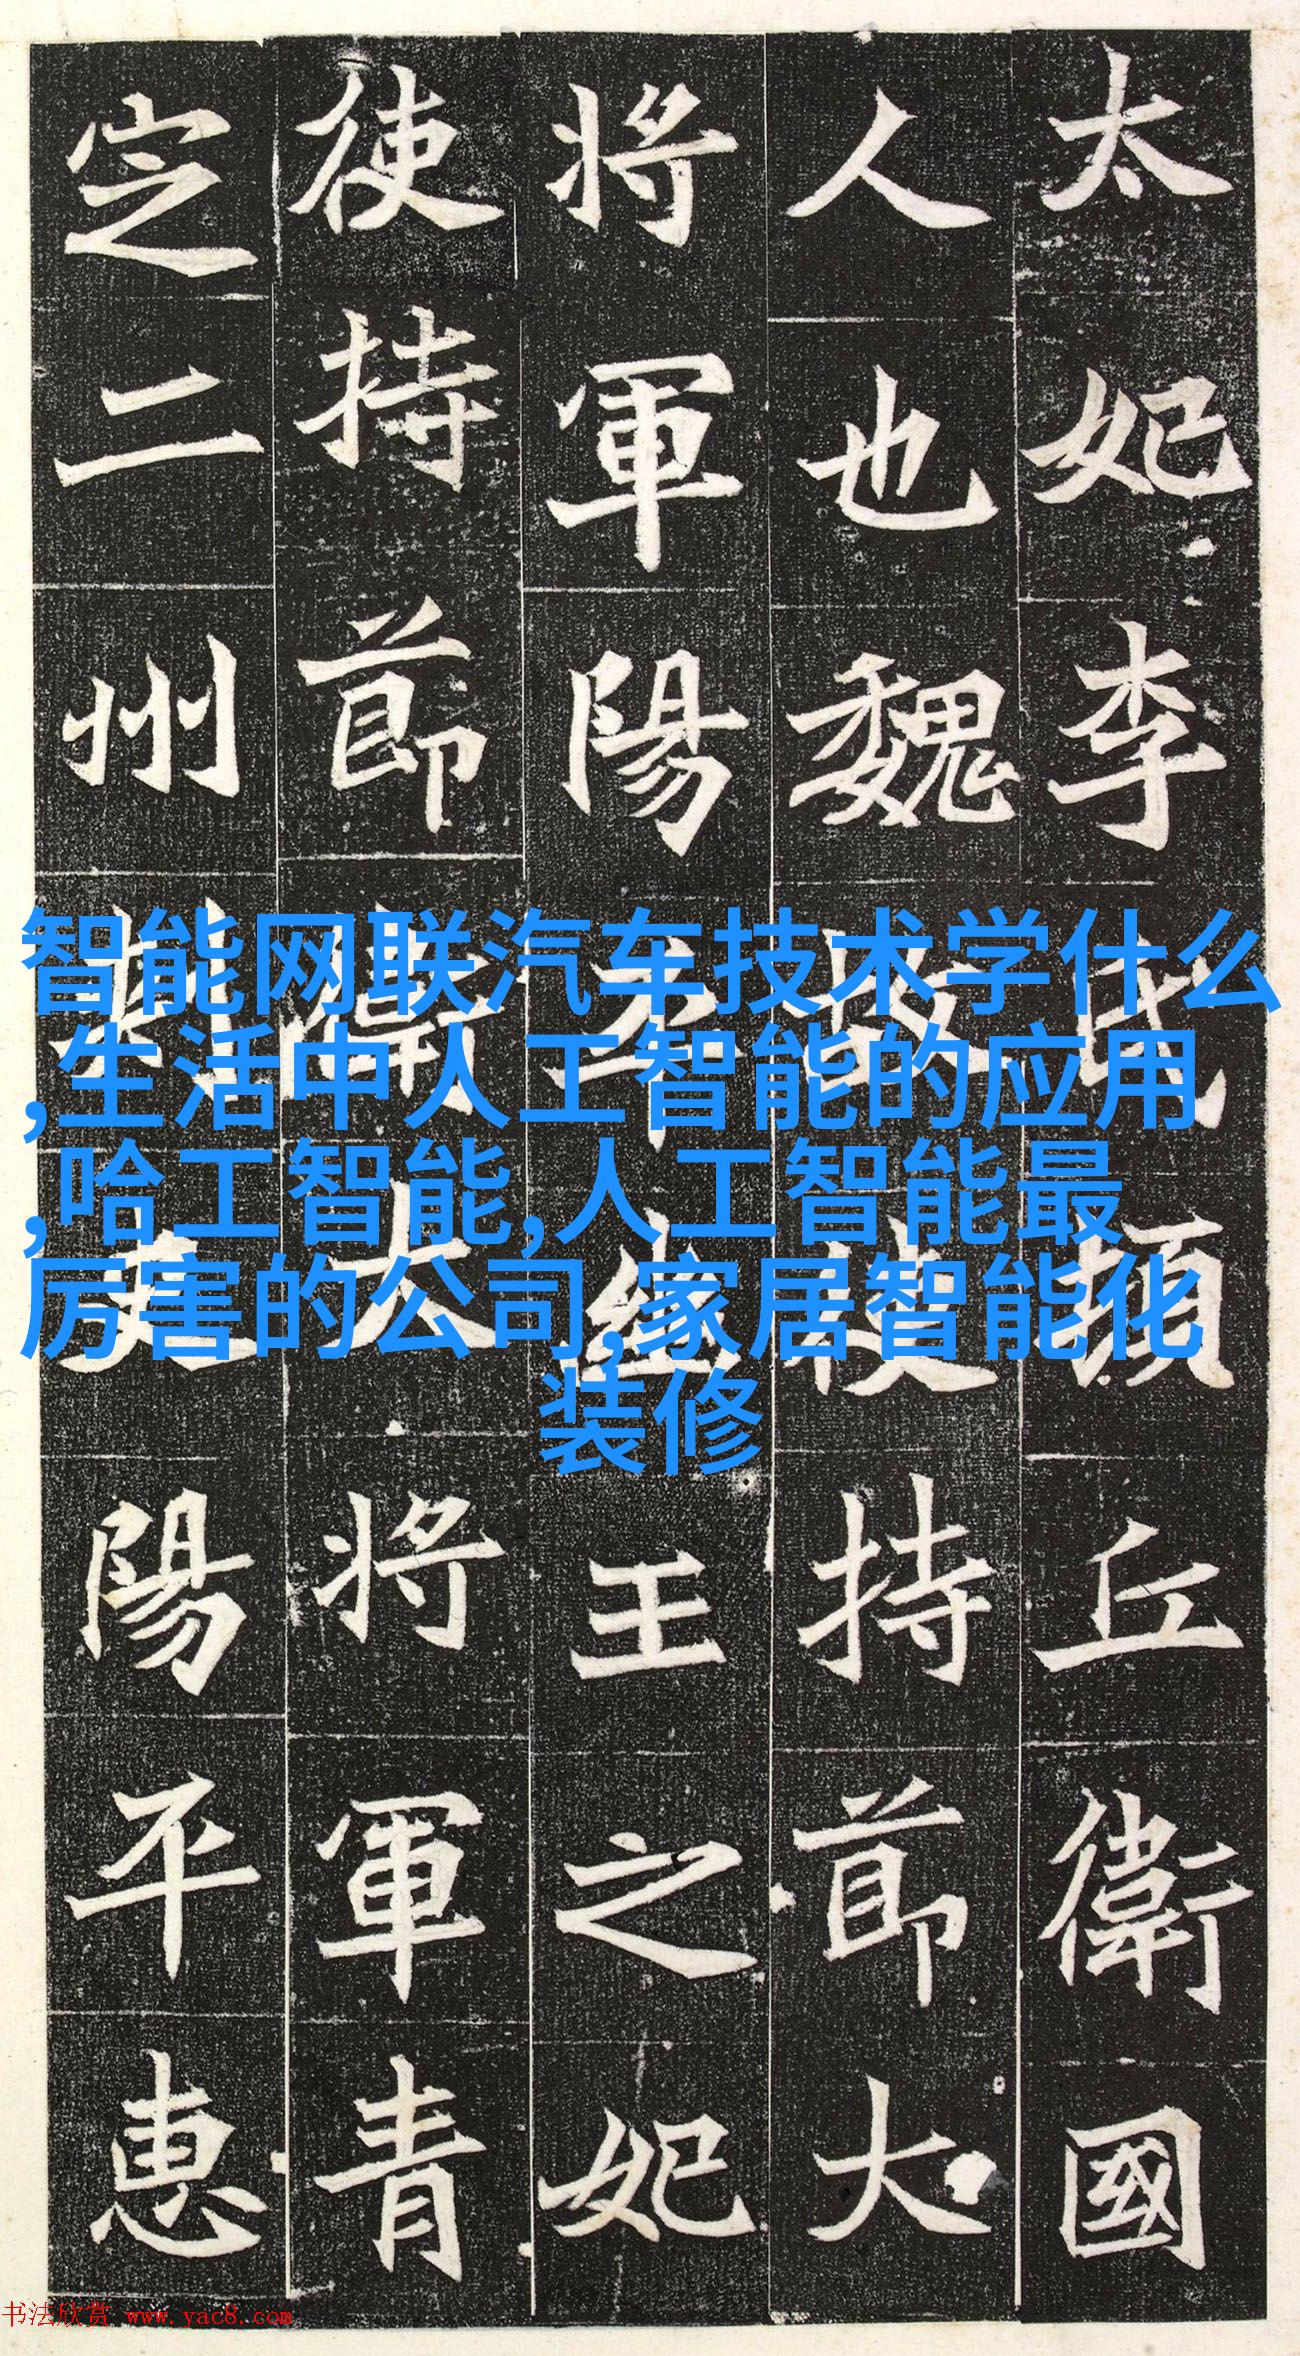 太妃李氏頓丘衛國
人也魏故使持節大
將軍陽平幽王之妃
使持節衛大將軍青
定二州刺史陽平惠
智能网联汽车技术学什么
,生活中人工智能的应用
,哈工智能,人工智能最
厉害的公司,家居智能化
装修
书法欣赏 www.yac8.com